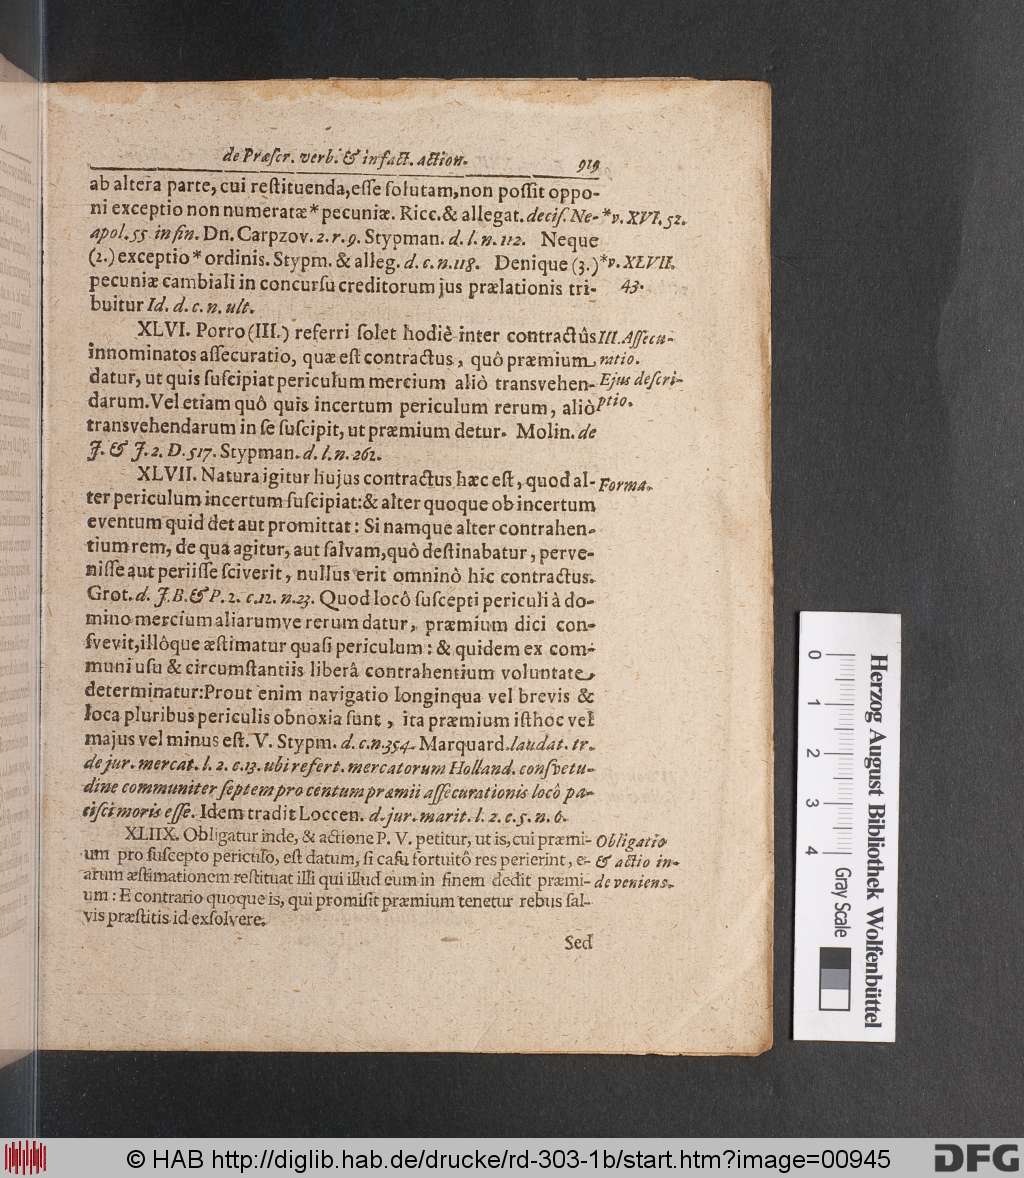 de Præſcr. verb. & in fact. action. 919
ab altera parte, cui reſtituenda, eſſe ſolutam, non poſſit oppo-
ni exceptio non numeratæ * pecuniæ. Ricc. & allegat. deciſ. Ne- *v. XVI. 52.
apol. 55 in fin. Dn. Carpzov. 2. r. 9. Stypman. d. l. n. 112. Neque
(2.) exceptio * ordinis. Stypm. & alleg. d. c. n. 118. Denique (3.) *v. XLVII.
pecuniæ cambiali in concurſu creditorum jus prælationis tri- 43.
buitur Id. d. c. n. ult.
XLVI. Porro (III.) referri ſolet hodiè inter contractûs III. Aſſecu-
innominatos aſſecuratio, quæ eſt contractus, quô præmium ratio.
datur, ut quis ſuſcipiat periculum mercium aliò transvehen- Ejus deſcri-
darum. Vel etiam quô quis incertum periculum rerum, aliò ptio.
transvehendarum in ſe ſuſcipit, ut præmium detur. Molin. de
J. & J. 2. D. 517. Stypman. d. l. n. 262.
XLVII. Natura igitur hujus contractus hæc eſt, quod al- Forma.
ter periculum incertum ſuſcipiat: & alter quoque ob incertum
eventum quid det aut promittat: Si namque alter contrahen-
tium rem, de qua agitur, aut ſalvam, quò deſtinabatur, perve-
niſſe aut periiſſe ſciverit, nullus erit omninò hic contractus.
Grot. d. J. B. & P. 2. c. 12. n. 23. Quod locô ſuſcepti periculi à do-
mino mercium aliarumve rerum datur, præmium dici con-
ſvevit, illôque æſtimatur quaſi periculum: & quidem ex com-
muni uſu & circumſtantiis liberâ contrahentium voluntate
determinatur: Prout enim navigatio longinqua vel brevis &
loca pluribus periculis obnoxia ſunt, ita præmium iſthoc vel
majus vel minus eſt. V. Stypm. d. c. n. 354. Marquard. laudat. tr.
de jur. mercat. l. 2. c. 13. ubi refert. mercatorum Holland. conſvetu-
dine communiter ſeptem pro centum præmii aſſecurationis locô pa-
ciſci moris eſſe. Idem tradit Loccen. d. jur. marit. l. 2. c. 5. n. 6.
XLIIX. Obligatur inde, & actione P. V. petitur, ut is, cui præmi- Obligatio
um pro ſuſcepto periculo, eſt datum, ſi caſu fortuitô res perierint, e- & actio in-
arum æſtimationem reſtituat illi qui illud eum in finem dedit præmi- de veniens.
um: E contrario quoque is, qui promiſit præmium tenetur rebus ſal-
vis præſtitis id exſolvere.
Sed
0 1 2 3 4
Gray Scale
Herzog August Bibliothek Wolfenbüttel
© HAB http://diglib.hab.de/drucke/rd-303-1b/start.htm?image=00945
DFG